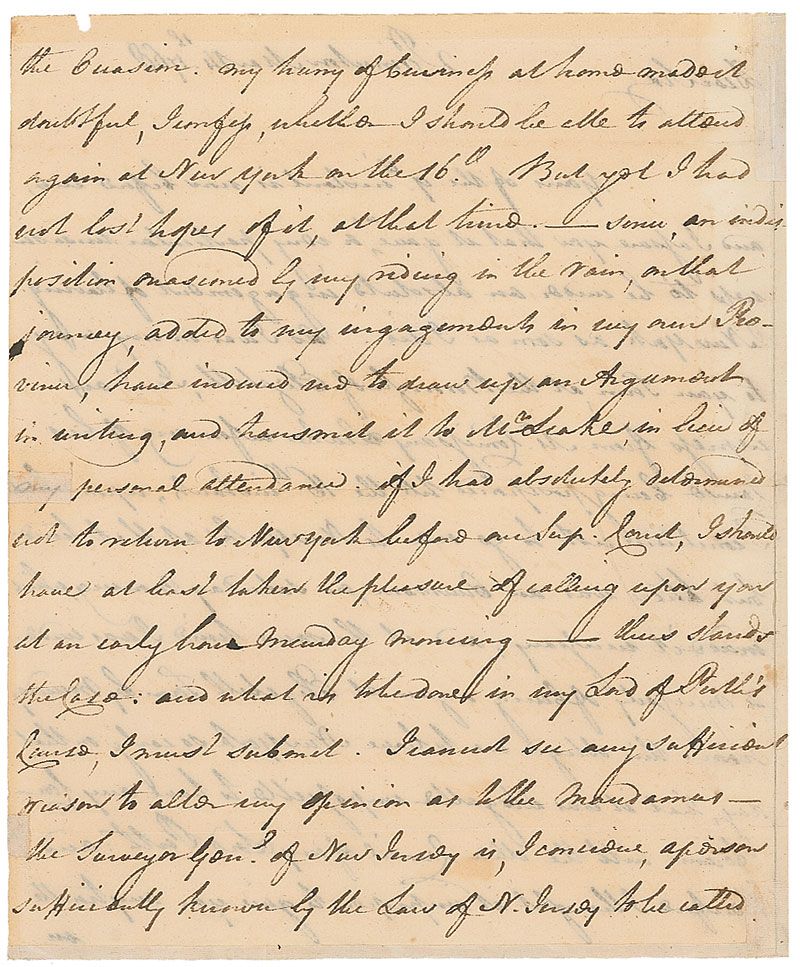 the Occasion. my hurry of Business at home made it
doubtful, I confess, whether I should be able to attend
again at New York on the 16th. But yet I had
not lost hopes of it, at that time. — since, an indis-
position occasioned by my riding in the rain, on that
journey, added to my ingagements in my own Pro-
vince, have induced me to draw up an Argument
in writing, and transmit it to Mr. Leake, in lieu of
my personal attendance. if I had absolutely determined
not to return to New york before our Sup. Court, I should
have at least taken the pleasure of calling upon you
at an early hour Munday morning — thus stands
the Case: and what is to be done in my Lord of Perth's
Cause, I must submit. I cannot see any sufficient
reason to alter my opinion as to the Mandamus —
the Surveyor Genl. of New Jersey is, I conceive, a person
sufficiently known by the Law of N. Jersey to be called